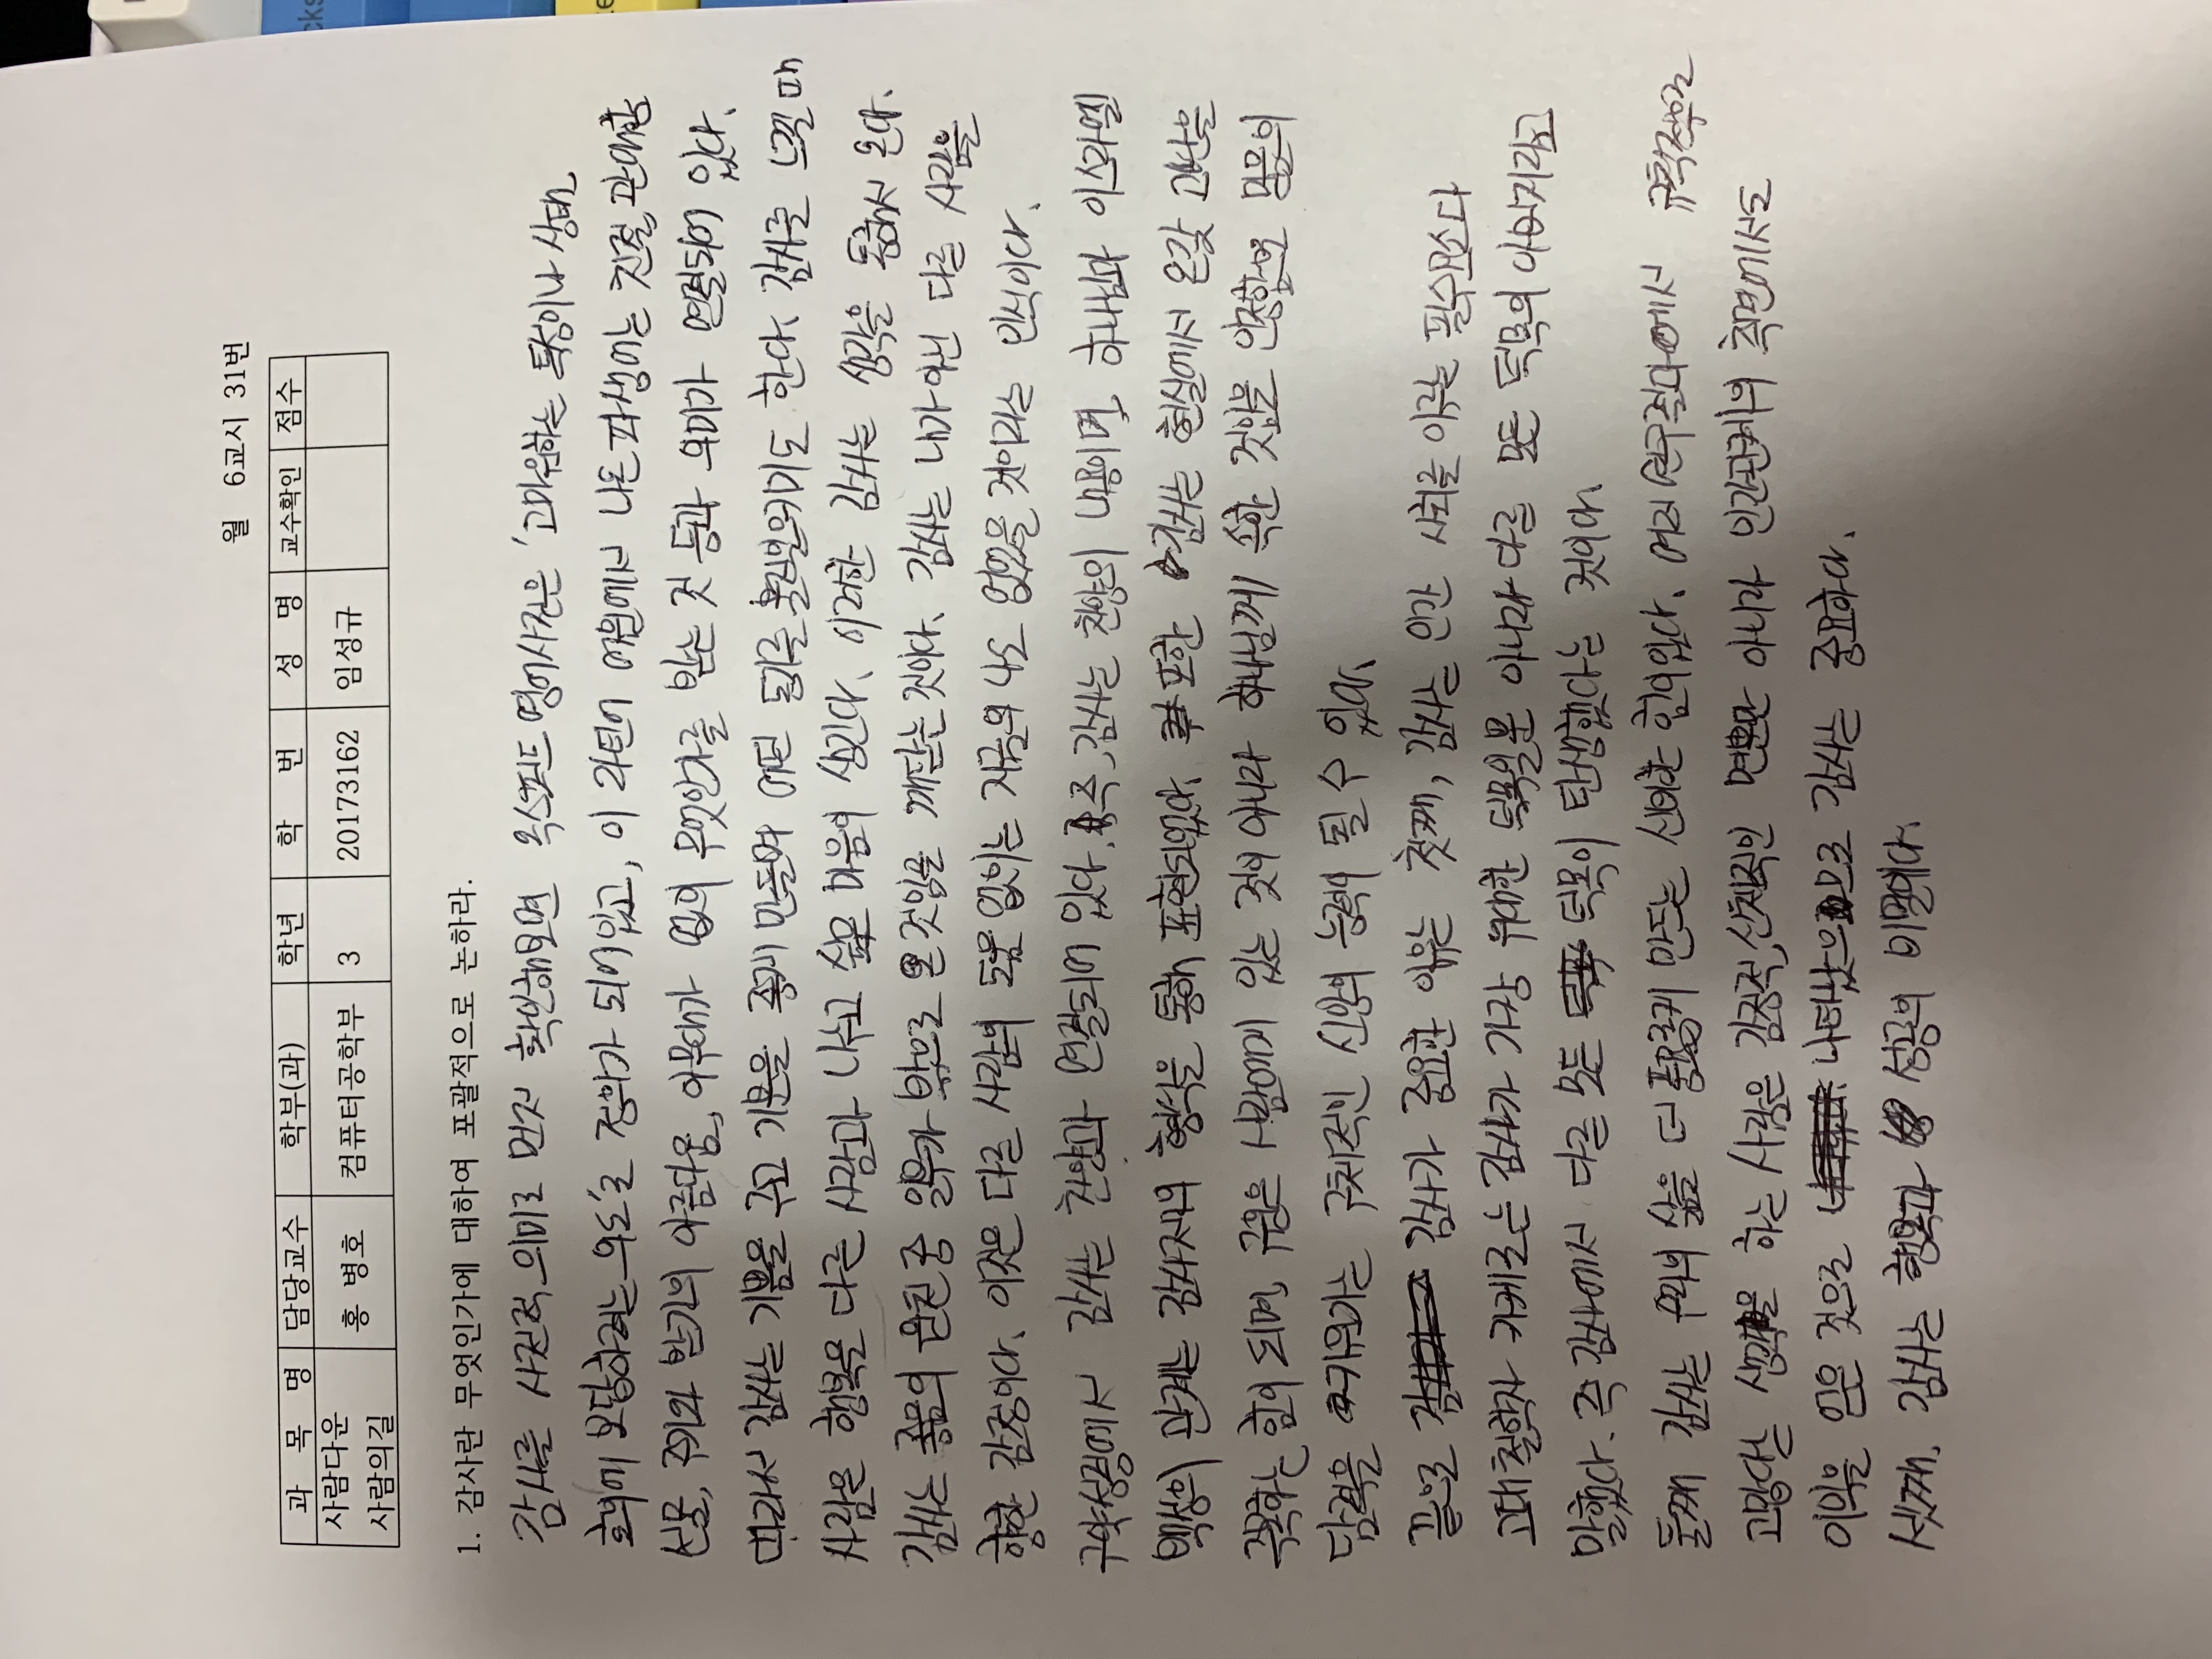 월 6교시 31번
과 목 명 담당교수 학부(과) 학년 학 번 성 명 교수확인 점수
사람다운 사람의길 홍 병호 컴퓨터공학부 3 20173162 임성규
1. 감사란 무엇인가에 대하여 포괄적으로 논하라.
감사를 사전적 의미로 먼저 확인해보면 옥스퍼드 영어사전은 '고마워하는 특성이나 상태,
호의에 보답하려는 의도'로 정의가 되어있고, 이 라틴어 어원에서 나온 파생어는 친절, 관대함
선물, 주기와 받기의 아름다움, 아무대가 없이 무엇인가를 받는 것 등과 의미가 연결되어 있다.
따라서 감사는 기쁨을 주고 기분을 좋게 만들며 어떤 동기를 불러일으키기도 한다. 감사를 느낄 때
사람은 행복을 다른 사람과 나누고 싶은 마음이 생긴다. 이러한 감사는 생각을 통해서 온다.
감사는 좋음의 원천 중 일부가 밖으로 온 것임을 깨닫는 것이다. 감사는 내가 아닌 다른 사람을
향한 감정이다. 이것은 다른 사람의 도움 없이는 지금의 나도 없었을 것이라는 인식이다.
구약성경에서 감사는 찬양과 연결되어 있다. 즉, 감사는 찬양의 내용이며, 하나님과 이스라엘
백성의 관계는 감사제의 형식을 통해 표현되었다. 또한 감사는 현실에서 온갖 고난을
극복하는 힘이 되며, 구원은 사람에게 있는 것이 아니라 하나님께 속한 것임을 인정함으로 믿음의
담력을 키워가는 구체적인 신앙의 능력이 될 수 있다.
끝으로 감사가 중요한 이유는 첫째, 감사는 인간 사회를 이루는 필수요소다
고대 철학자 키케로는 감사가 가장 위대한 덕목일뿐 아니라 다른 모든 덕목의 아버지라고
말했다. 즉 감사에서 다른 모든 덕목이 탄생했다는 것이다.
둘째 감사는 우리의 삶을 더 풍요롭게 만드는 신비한 힘이있다. 여러 연구결과에서 규칙적으로
고맙다는 생각을 하는 사람은 감정적, 신체적인 면뿐만 아니라 인간관계의 측면에서도
이익을 얻은 것으로 나타났으므로 감사는 중요하다.
셋째. 감사는 행복과 성공의 비밀이다.